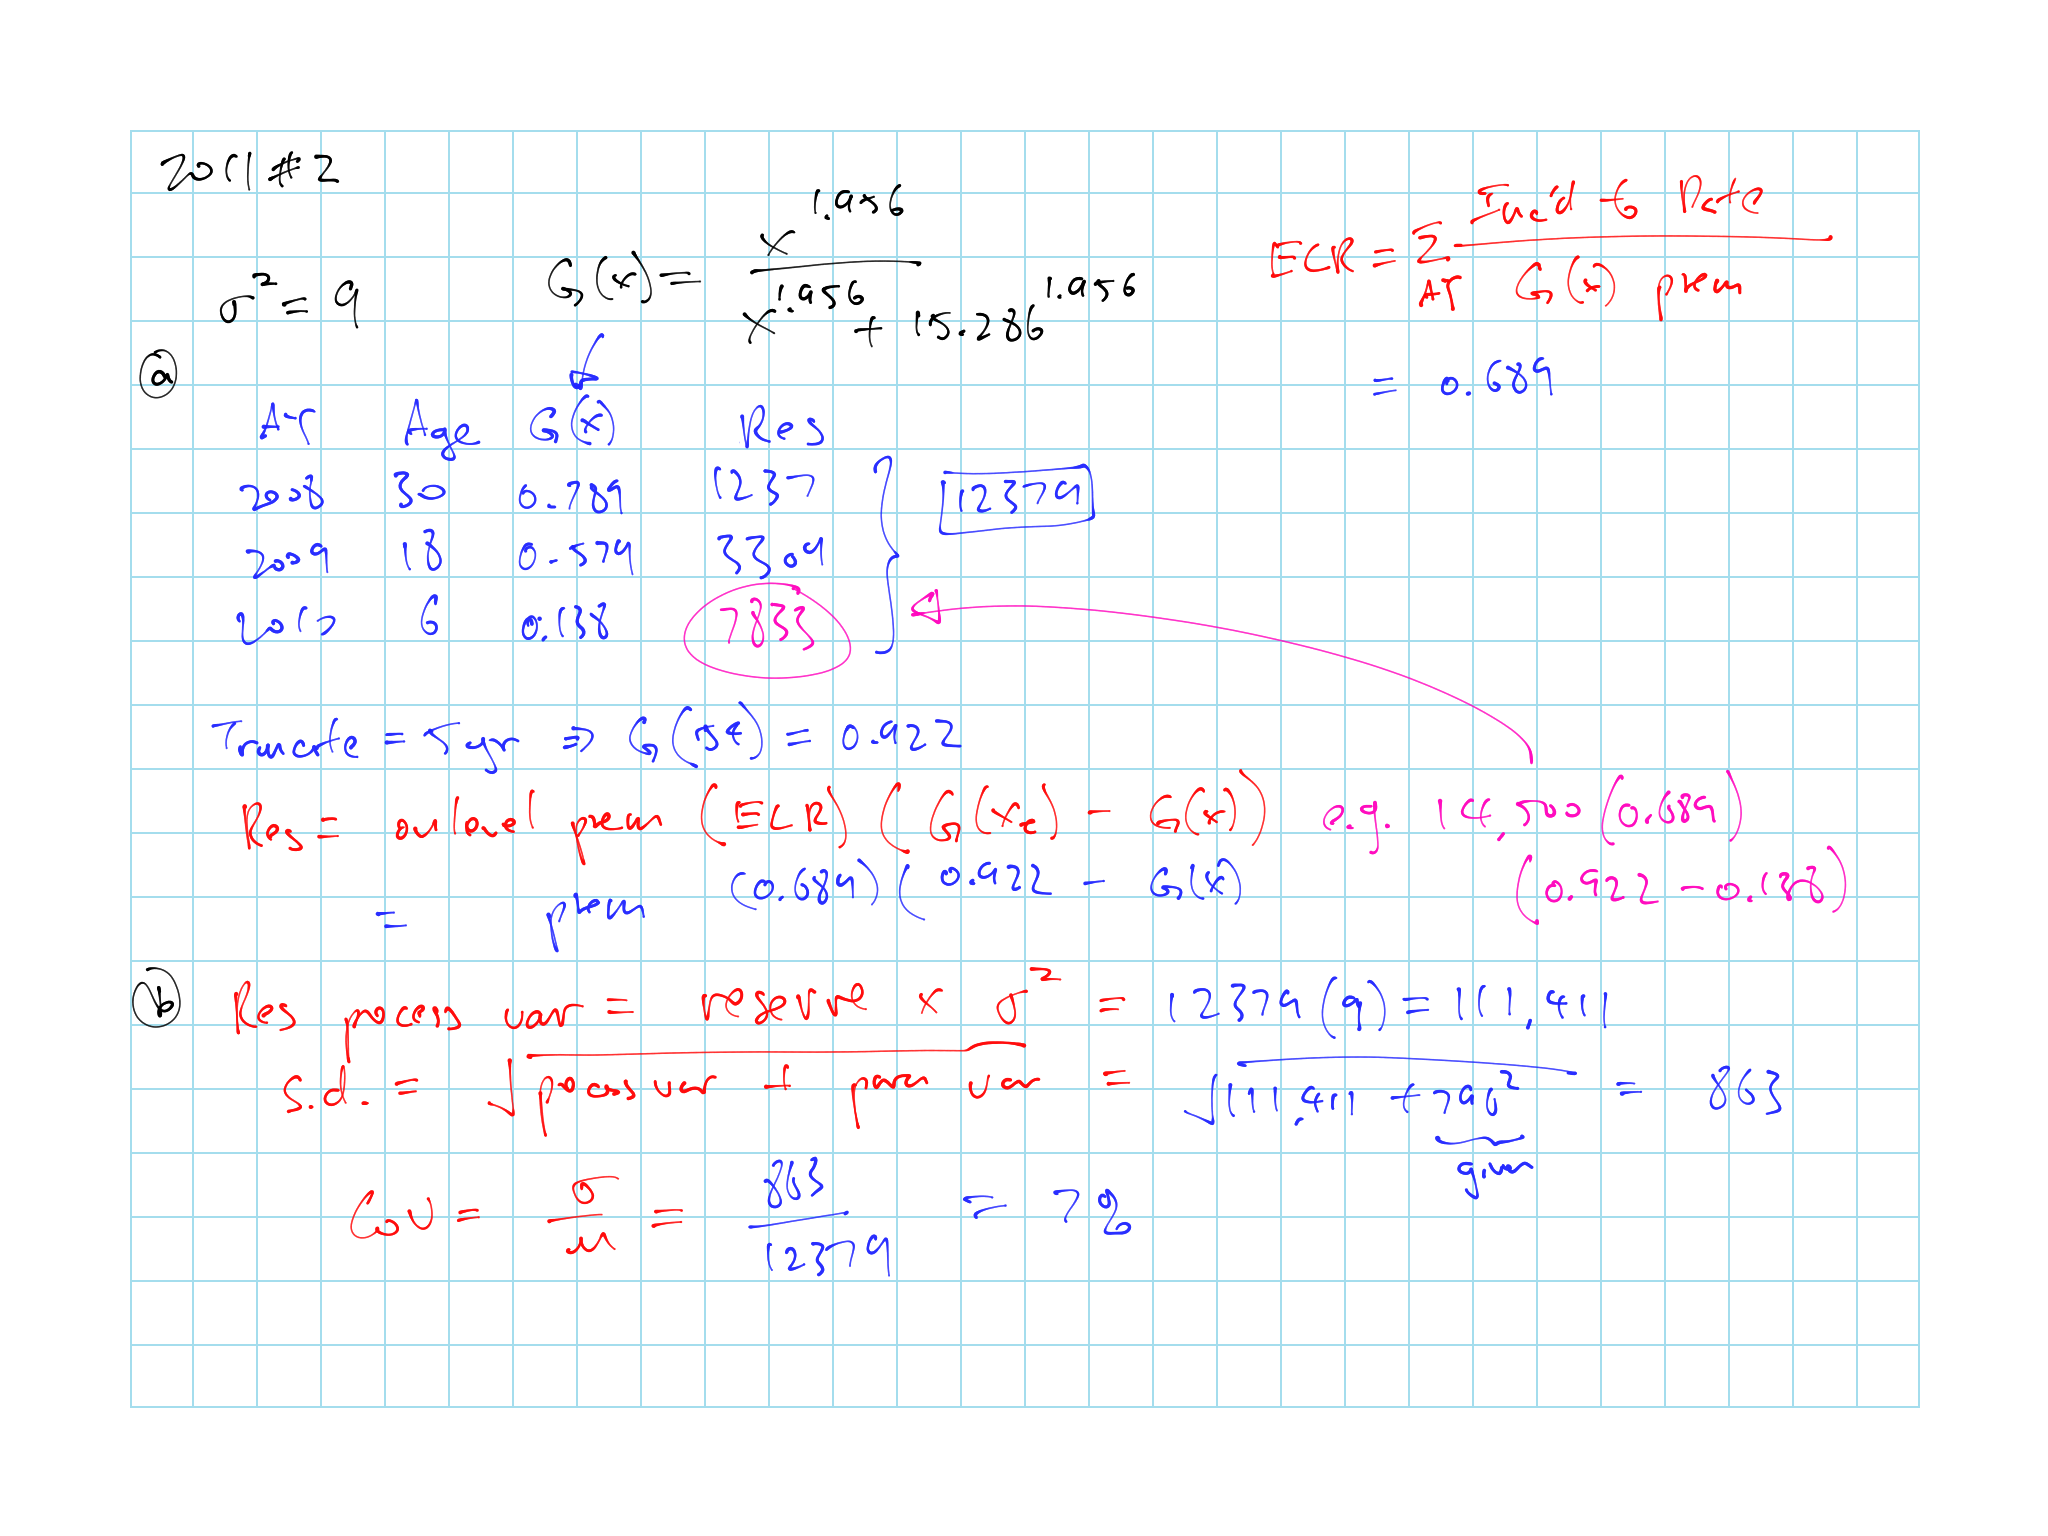 2011 #2
σ² = 9
G(x) = x^1.956 / (x^1.956 + 15.286^1.956)
ECR = Σ_AY Inc'd to Date / G(x) prem
= 0.689
(a)
AY Age G(x) Res
2008 30 0.789 1237
2009 18 0.579 3309
2010 6 0.138 7833
12379
Truncate = 5 yr ⇒ G(54) = 0.922
Res = onlevel prem (ECR) (G(x_t) - G(x)) e.g. 14,500 (0.689)
= prem (0.689) (0.922 - G(x) (0.922 - 0.138)
(b) Res process var = reserve × σ² = 12379 (9) = 111,411
s.d. = √(process var + para var) = √(111,411 + 796²) = 863
given
CoV = σ/μ = 863/12379 = 7%